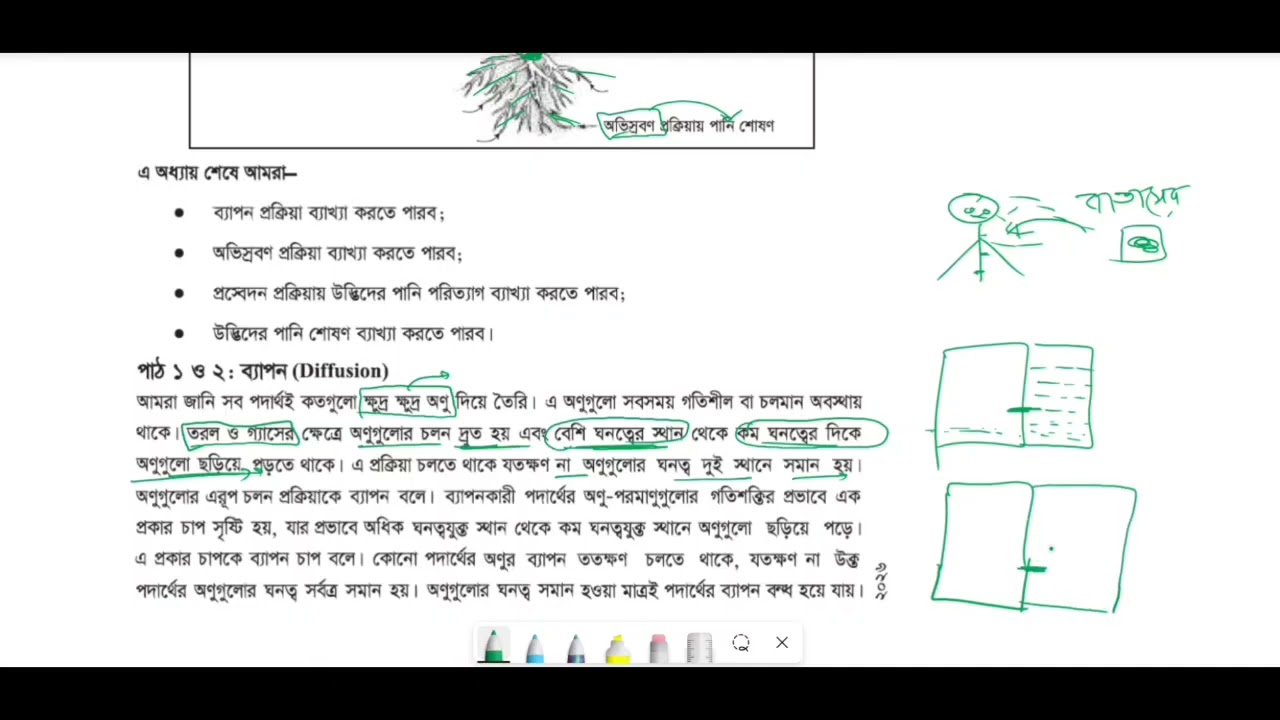 অভিস্রবণ প্রক্রিয়ায় পানি শোষণ
এ অধ্যায় শেষে আমরা–
● ব্যাপন প্রক্রিয়া ব্যাখ্যা করতে পারব;
● অভিস্রবণ প্রক্রিয়া ব্যাখ্যা করতে পারব;
● প্রস্বেদন প্রক্রিয়ায় উদ্ভিদের পানি পরিত্যাগ ব্যাখ্যা করতে পারব;
● উদ্ভিদের পানি শোষণ ব্যাখ্যা করতে পারব।
বাতাসের
পাঠ ১ ও ২ : ব্যাপন (Diffusion)
আমরা জানি সব পদার্থই কতগুলো ক্ষুদ্র ক্ষুদ্র অণু দিয়ে তৈরি। এ অণুগুলো সবসময় গতিশীল বা চলমান অবস্থায়
থাকে। তরল ও গ্যাসের ক্ষেত্রে অণুগুলোর চলন দ্রুত হয় এবং বেশি ঘনত্বের স্থান থেকে কম ঘনত্বের দিকে
অণুগুলো ছড়িয়ে পড়তে থাকে। এ প্রক্রিয়া চলতে থাকে যতক্ষণ না অণুগুলোর ঘনত্ব দুই স্থানে সমান হয়।
অণুগুলোর এরূপ চলন প্রক্রিয়াকে ব্যাপন বলে। ব্যাপনকারী পদার্থের অণু-পরমাণুগুলোর গতিশক্তির প্রভাবে এক
প্রকার চাপ সৃষ্টি হয়, যার প্রভাবে অধিক ঘনত্বযুক্ত স্থান থেকে কম ঘনত্বযুক্ত স্থানে অণুগুলো ছড়িয়ে পড়ে।
এ প্রকার চাপকে ব্যাপন চাপ বলে। কোনো পদার্থের অণুর ব্যাপন ততক্ষণ চলতে থাকে, যতক্ষণ না উক্ত
পদার্থের অণুগুলোর ঘনত্ব সর্বত্র সমান হয়। অণুগুলোর ঘনত্ব সমান হওয়া মাত্রই পদার্থের ব্যাপন বন্ধ হয়ে যায়।